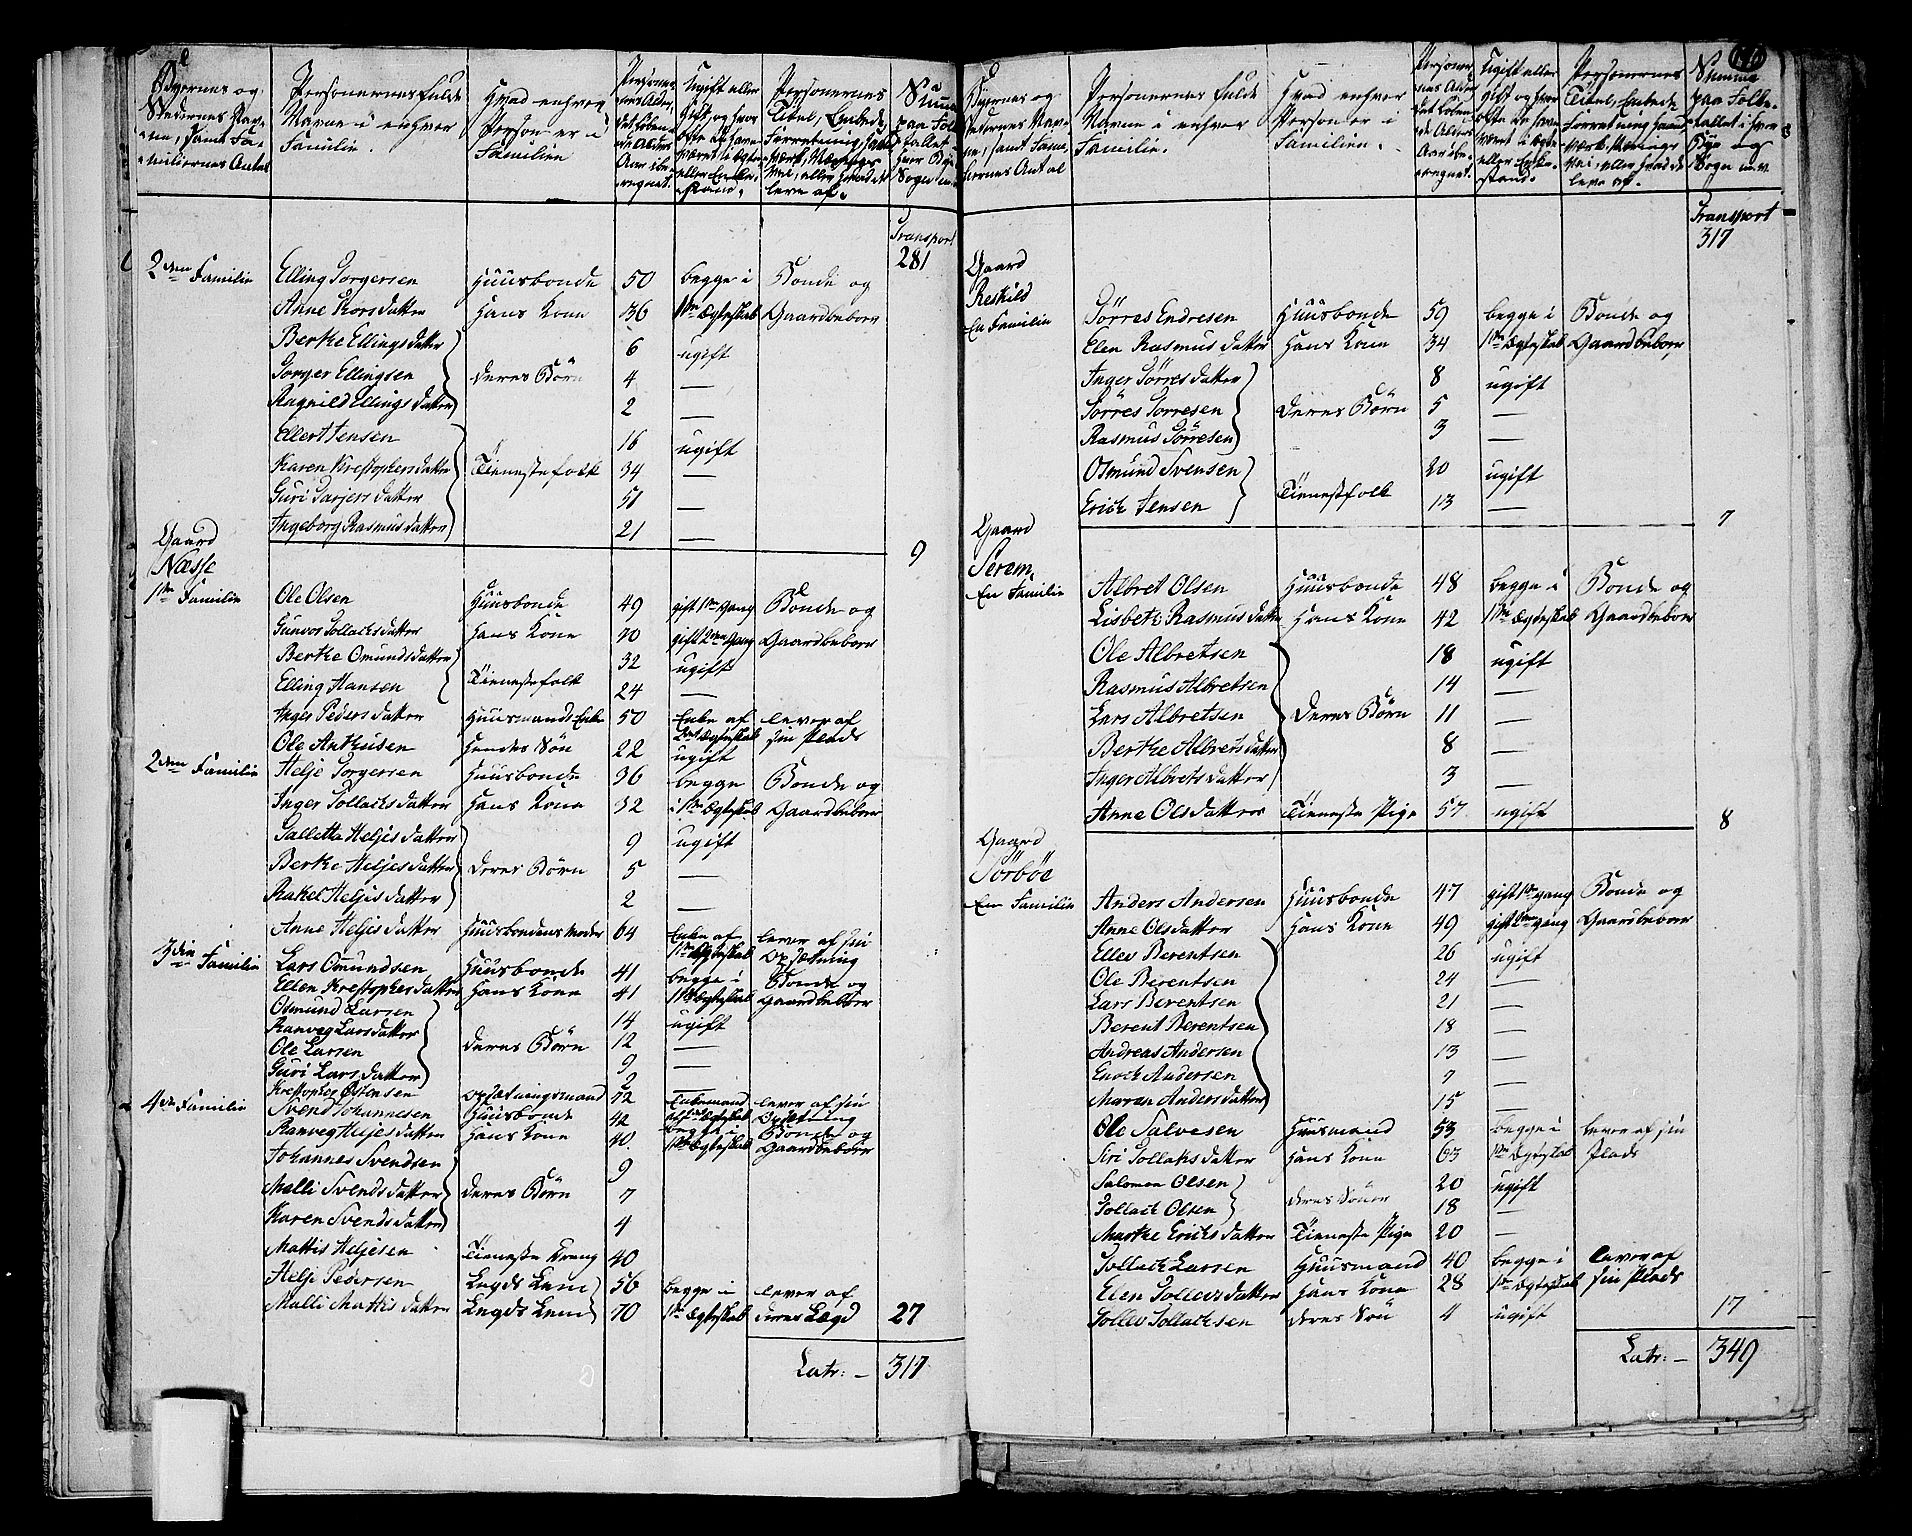 Byernes og
Stedernes Nav-
ne, samt Fa-
miliernes Antal
Personernes fulde
Navne i enhver
Familie.
Hvad enhver
Person er i
Familien
Ugift eller
gift, og hvor
ofte de have
været i Ægte-
eller Enke-
stand.
Personernes
Titel, Embede,
Forretning, Haand-
værk, Nærings-
vei, eller hvad de
leve af.
Transport
281
2den Familie
Elling Torgersen Huusbonde 50 begge i Bonde og
Anne Torsdatter Hans Kone 36 1ste Ægteskab Gaardbeboer
Berthe Ellingsdatter 6 ugift
Torger Ellingsen deres Børn 4 —
Ragnild Ellingsdatter 2 —
Ellert Jensen 16 ugift
Karen Krestophersdatter Tienestefolk 34 —
Guri Tarjersdatter 51 —
Ingeborg Rasmusdatter 21 —
9
Gaard
Næsse
1ste Familie Ole Olsen Huusbonde 49 gift 1ste gang Bonde og
Gunvor Tollachsdatter Hans Kone 40 gift 2den gang Gaardbeboer
Berthe Omundsdatter 32 ugift
Elling Hansen Tienestefolk 24 —
Inger Pedersdatter Huusmands Enke 50 Enke af lever af
Ole Anthuisen Hendes Søn 22 ugift sin Plads
2den Familie Helje Torgersen Huusbonde 36 begge Bonde og
Inger Tollachsdatter Hans Kone 32 i 1ste Ægteskab Gaardbeboer
Talletta Heljesdatter 9 ugift
Berthe Heljesdatter deres Børn 5 —
Rakel Heljesdatter 2 —
Anne Heljesdatter Huusbondens Moder 64 Enke af 1ste Ægteskab lever af sin Opsætning
3die Familie Lars Omundsen Huusbonde 41 begge i Bonde og
Ellen Krestophersdatter Hans Kone 41 1ste Ægteskab Gaardbeboer
Osmund Larsen 14 ugift
Ranveg Larsdatter 12 —
Ole Larsen deres Børn 9 —
Guri Larsdatter 2 —
Krestopher Østensen Opsætningsmand 72 Enkemand af 1ste Ægteskab lever af sin Opsætning
4de Familie Svend Johannesen Huusbonde 42 begge i Bonde og
Ranveg Heljesdatter Hans Kone 40 1ste Ægteskab Gaardbeboer
Johannes Svendsen 9
Malli Svendsdatter deres Børn 7
Karen Svendsdatter 4
Mattis Heljesen Tieneste Dreng 40
Helje Pedersen Legds Lem 56 begge i lever af
Malli Mattisdatter Legds Lem 70 1ste Ægteskab deres Lægd 27
Latr: — 317
Byernes og
Stedernes Nav-
ne, samt Fami-
liernes Antal
Personernes fulde
Navne i enhver
Familie.
Hvad enhver
Person er i
Familien.
Personer-
nes Alder,
det løben-
de Alders
Aar ibe-
regnet.
Ugift eller
gift og hvor
ofte de have
været i Ægte-
eller Enke-
stand.
Personernes
Titel, Embede
Forretning, Haand-
værk, Nærings-
vei, eller hvad de
leve af.
Summa
paa Folke-
tallet i hver
Bye og
Sogn m.v.
Transport
317
Gaard
Reskild
En Familie Tørres Endresen Huusbonde 59 begge i Bonde og
Elen Rasmusdatter Hans Kone 34 1ste Ægteskab Gaardbeboer
Inger Tørresdatter 8 ugift
Tørres Torresen deres Børn 5 —
Rasmus Tørresen 3 —
Osmund Svensen 20 ugift
Erich Jensen Tienestfolk 13 —
7
Gaard
Serem
En Familie Albret Olsen Huusbonde 48 begge i Bonde og
Lisbeth Rasmusdatter Hans Kone 42 1ste Ægteskab Gaardbeboer
Ole Albretsen 18 ugift
Rasmus Albretsen 14 —
Lars Albretsen deres Børn 11 —
Berthe Albretsdatter 8 —
Inger Albretsdatter 3 —
Anne Olsdatter Tieneste Pige 57 ugift
8
Gaard
Sørbøe
En Familie Anders Andersen Huusbonde 47 gift 1ste gang Bonde og
Anne Olsdatter Hans Kone 49 gift 2den gang Gaardbeboer
Ellev Berentsen 26 ugift
Ole Berentsen 24 —
Lars Berentsen 21 —
Berent Berentsen 18 —
Andreas Andersen 13 —
Enoch Andersen 7 —
Maren Andersdatter 15 —
Ole Salvesen Huusmand 53 begge i lever af sin
Siri Tollaksdatter Hans Kone 63 1ste Ægteskab Plads
Salomon Olsen 20 ugift
Tollach Olsen deres Sønner 18 —
Marthe Erichsdatter Tieneste Pige 20 —
Tollach Larsen Huusmand 40 begge i lever af
Elen Tollevsdatter Hans Kone 28 1ste Ægteskab sin Plads
Tollev Tollachsen deres Søn 4 ugift 17
Latr: — 349